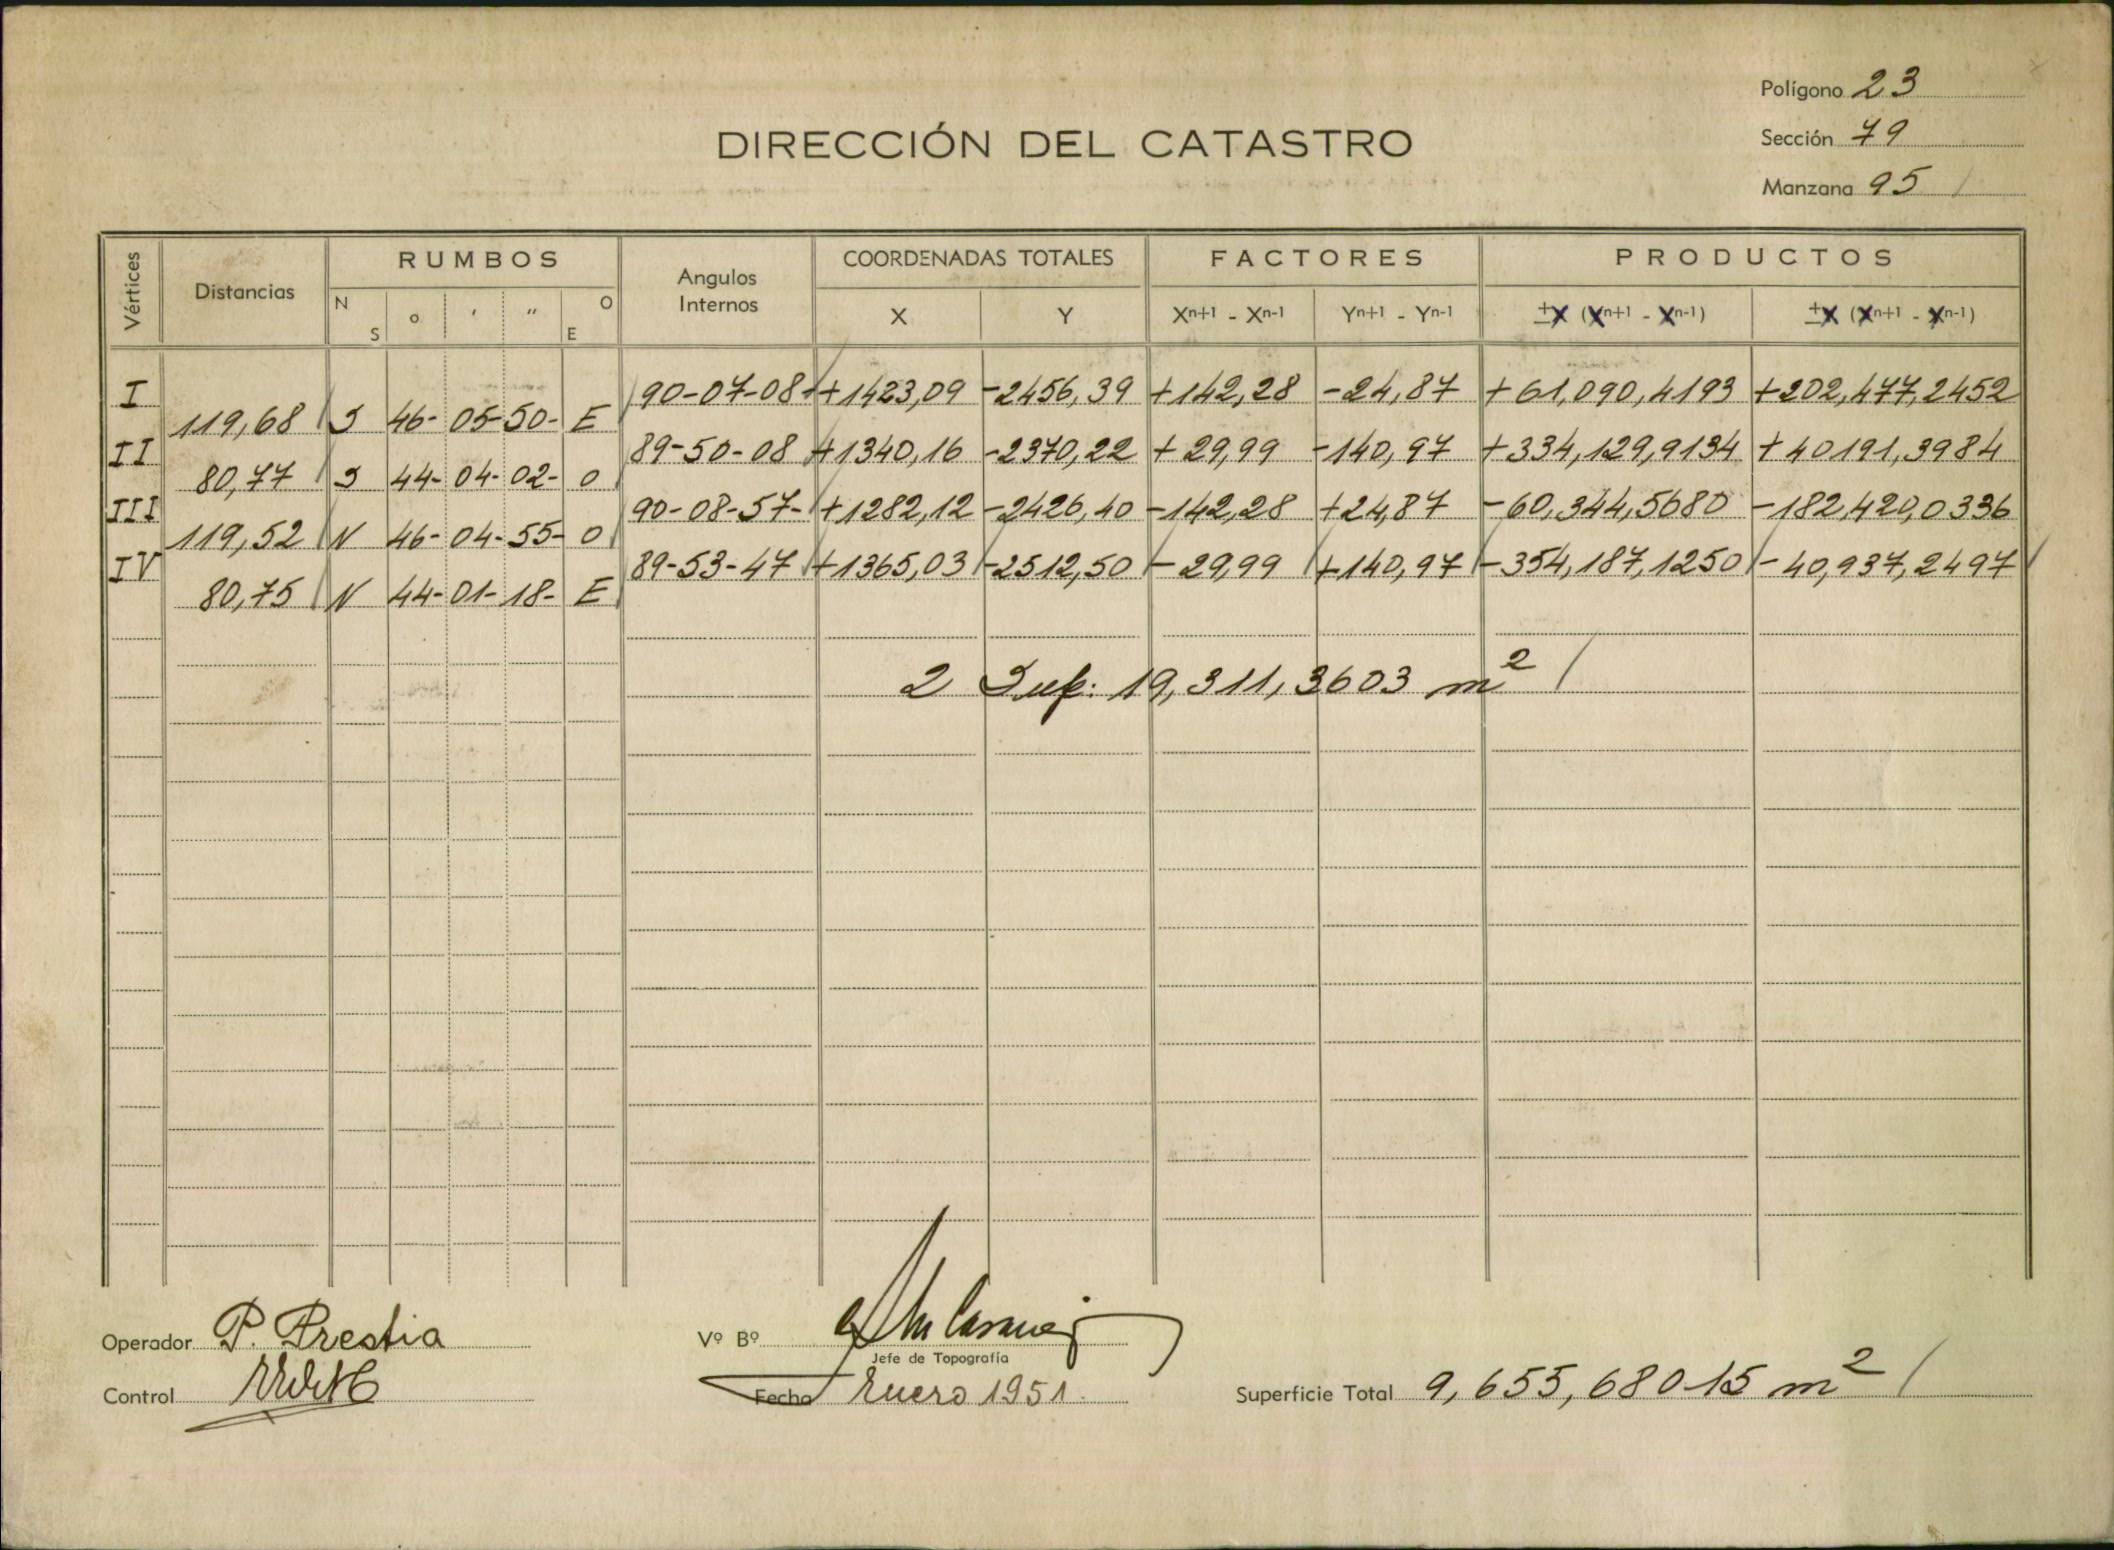 Polígono 23
DIRECCIÓN DEL CATASTRO
Sección 79
Manzana 95 /
Vértices Distancias RUMBOS Angulos Internos COORDENADAS TOTALES FACTORES PRODUCTOS
N S o ' " O E X Y Xn+1 - Xn-1 Yn+1 - Yn-1 ±X (Xn+1 - Xn-1) ±X (Xn+1 - Xn-1)
I 90-07-08 +1423,09 -2456,39 +142,28 -24,87 +61,090,4193 +202,477,2452
119,68 S 46- 05- 50- E
II 89-50-08 +1340,16 -2370,22 +29,99 -140,97 +334,129,9134 +40191,3984
80,77 S 44- 04- 02- O
III 90-08-57- +1282,12 -2426,40 -142,28 +24,87 -60,344,5680 -182,420,0336
119,52 N 46- 04- 55- O
IV 89-53-47 +1365,03 -2512,50 -29,99 +140,97 -354,187,1250 -40,937,2497
80,75 N 44- 01- 18- E
2 Sup: 19,311,3603 m² /
Operador P. Prestia Vº Bº
Jefe de Topografía
Control Fecha Enero 1951. Superficie Total 9,655,68015 m² /